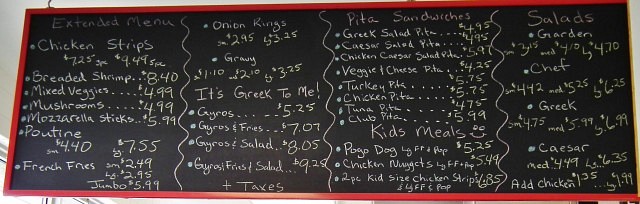 Extended Menu
• Chicken Strips
$7.25 3pc $9.49 5pc
• Breaded Shrimp... $8.40
• Mixed Veggies.... $4.99
• Mushrooms...... $4.99
• Mozzarella Sticks.. $5.99
• Poutine
sm $4.40 lg $7.55
• French Fries sm $2.49
Lg $2.95
Jumbo $5.99
• Onion Rings
sm $2.95 Lg $3.25
• Gravy
$1.10 med $2.10 Lg $3.25
It's Greek To Me!
Gyros.... $5.25
Gyros & Fries...$7.07
Gyros & Salad...$8.05
Gyros/Fries & Salad... $9.25
+ Taxes
Pita Sandwiches
• Greek Salad Pita.... $4.95
• Caesar Salad Pita.... $4.95
• Chicken Caesar Salad Pita. $5.97
• Veggie & Cheese Pita.. $4.25
• Turkey Pita......... $5.75
• Chicken Pita....... $5.75
• Tuna Pita......... $4.75
• Club Pita......... $5.99
Kids Meals
• Pogo Dog Lg FF & Pop $5.25
• Chicken Nuggets Lg FF & Pop $5.49
• 2pc Kid Size Chicken Strips $6.85
& Lg FF & Pop
Salads
• Garden
sm $3.15 med $4.10 Lg $4.70
• Chef
sm $4.42 med $5.25 Lg $6.25
• Greek
sm $4.75 med $5.99 Lg $6.99
• Caesar
med $4.49 Lg $6.35
Add Chicken $1.35 Lg $1.99